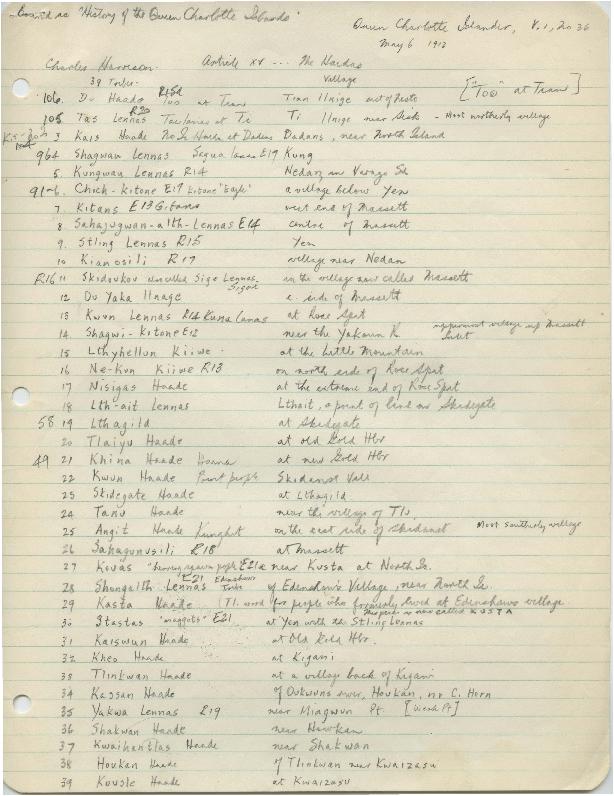 Bound as "History of the Queen Charlotte Islands"
Queen Charlotte Islander, V.1, No 36
May 6 1912
Charles Harrison Article XV --- The Haidas
39 Tribes Village ["Too" at Tian]
106. Du Haade R15d Too at Tian Tian Ilnige west of
105 Tas Lennas R20 Taslanas at Te Ti Ilnige near - Most northerly village
3 Kais Haade No 2 at Dadens Dadans, near North Island
964 Shagwan Lennas E19 Kung
5. Kungwan Lennas R14 Nedan in Sd
91-6. Chich-Kitone E17 Kitone "Eagle" a village below Yen
7. Kitans E13 Gitans west end of Massett
8. Sahajugwan-alth-Lennas E14 centre of Massett
9. Stling Lennas R15 Yen
10 Kianosili R17 village near Nedan
R16 11 Skidoukou also called Sigo Lennas. in the village now called Massett
12 Du Yaka Ilnage e. side of Massett
13 Kwun Lennas R14 Kuna lanas at Rose Spit
14 Shagwi-Kitone E12 near the Yakoun R. uppermost village up Massett Inlet
15 Lthyhellun Kiiwe at the Little Mountain
16 Ne-Kun Kiiwe R13 on north side of Rose Spit
17 Nisigas Haade at the extreme end of Rose Spit
18 Lth-ait Lennas Lthait, a point of land nr Skidegate
58 19 Lthagild at Skidegate
20 Tlaiyu Haade at old Gold Hbr
49 21 Khina Haade Haana at new Gold Hbr
22 Kwun Haade Point people Skidanst Vall
23 Skidegate Haade at Lthagild
24 Tanu Haade near the village of Tlu
25 Angit Haade Kunghit on the east side of Skidanst Most southerly village
26 Sahagunusili R18 at Massett
27 Kouas "herring spawn people" E21a near Kusta at North Is.
28 Shongalth Lennas E21 Edenshaw's Tribe of Edenshaw's Village, near North Is.
29 Kasta Haade (Tl. word for people who formerly lived at Edenshaws village
now called KUSTA
30 Stastas "maggots" E21 at Yen with the Stling Lennas
31 Kaiswun Haade at Old Gold Hbr.
32 Kheo Haade at Kigani
33 Tlinkwan Haade at a village back of Kigani
34 Kassan Haade of Oukwuns river, Houkan, nr C. Horn
35 Yakwa Lennas R19 near Miagwun Pt. [ Pt]
36 Shakwan Haade near Howkan
37 Kwaihantlas Haade near Shakwan
38 Houkan Haade of Tlinkwan near Kwaizasu
39 Kouste Haade at Kwaizasu